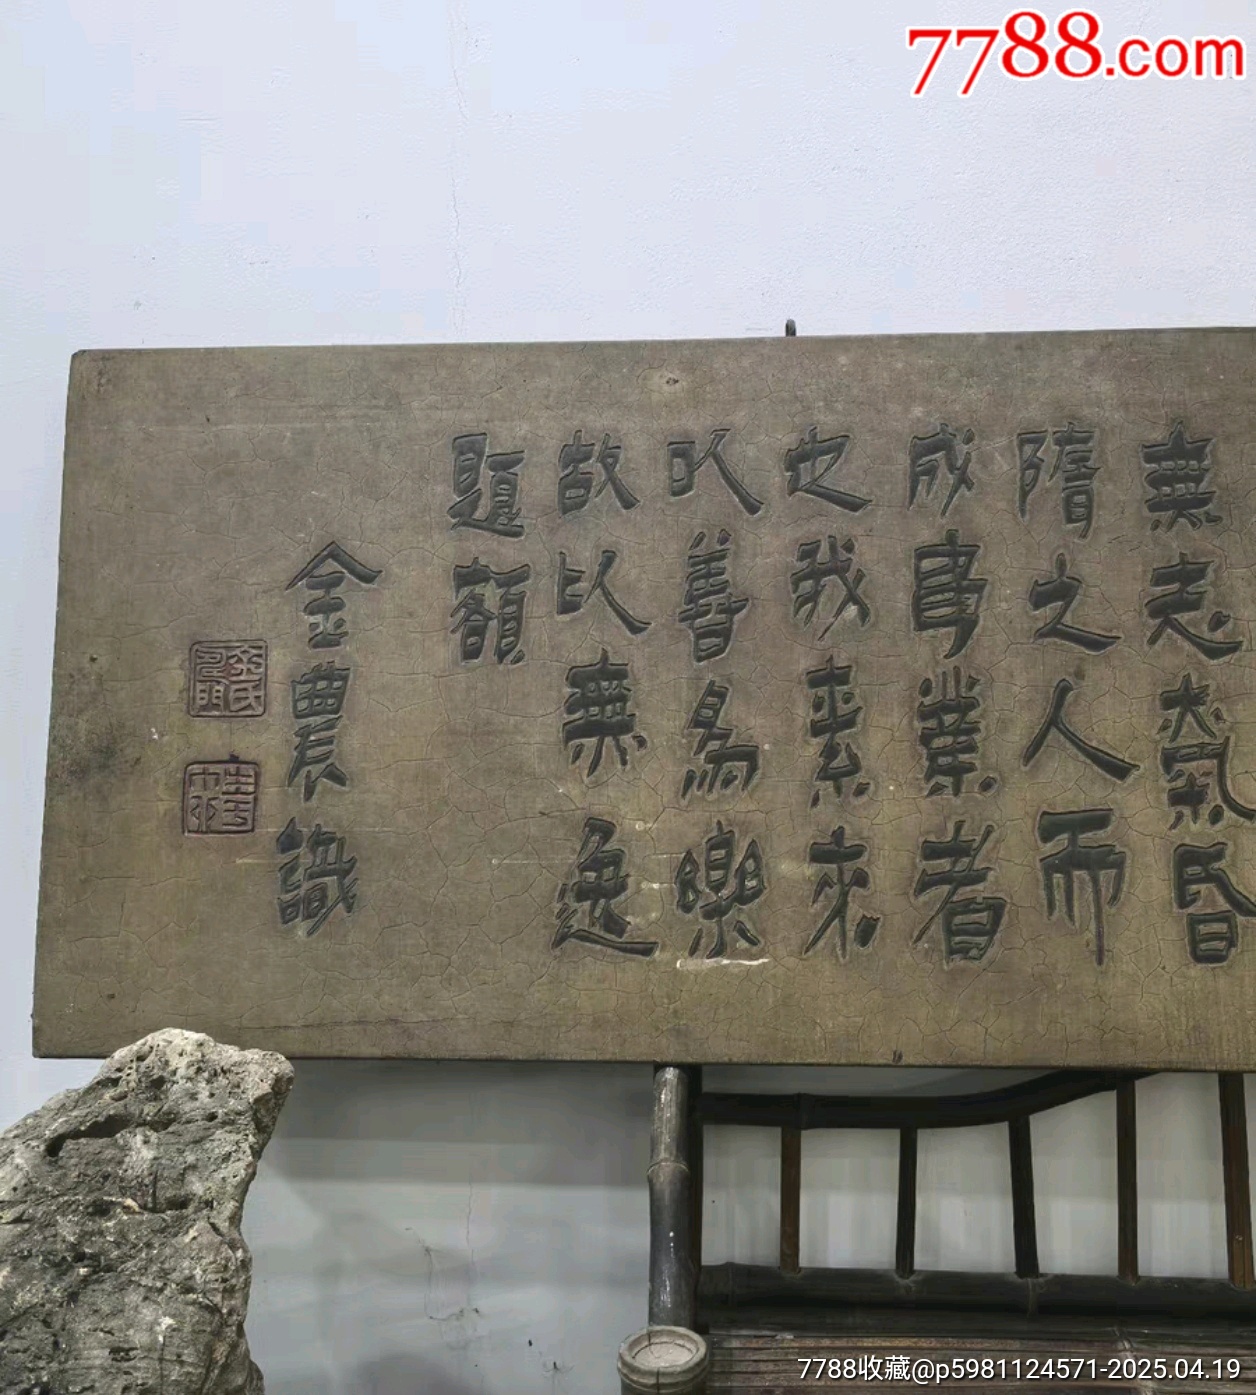 7788.com
無志氣昏
隋之人而
成事業者
也我素來
以善為樂
故以無逸
題額
金農識
金氏
7788收藏@p5981124571-2025.04.19